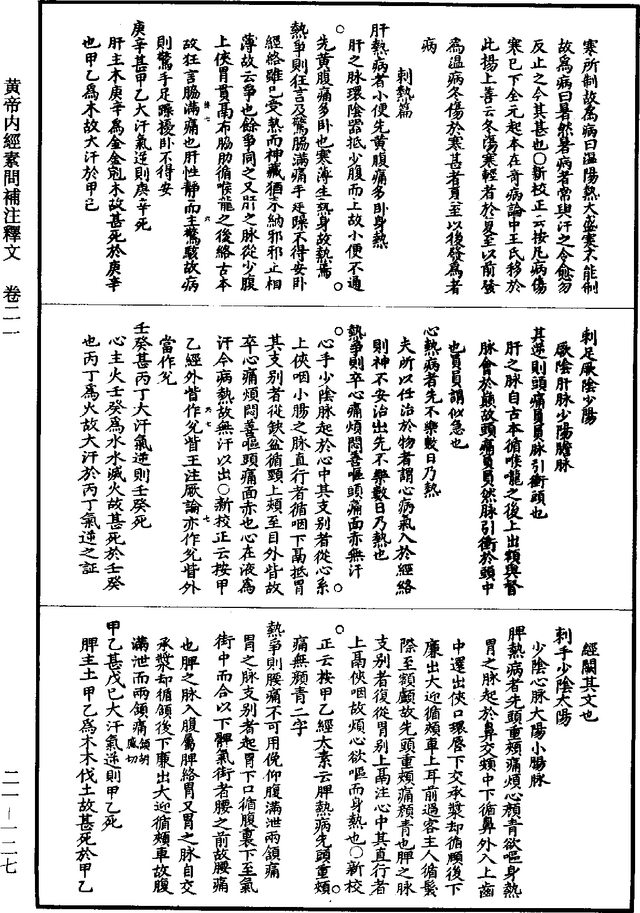 黄帝内經素問補注釋文 卷二一
二一—一二七
寒所制故爲病曰温陽熱大盛寒不能制
故爲病曰暑然暑病者當與汗之令愈勿
反止之令其甚也○新校正云按凡病傷
寒已下全元起本在奇病論中王氏移於
此楊上善云冬傷寒輕者於夏至以前發
爲温病冬傷於寒甚者夏至以後發爲暑
病
刺熱篇
肝熱病者小便先黄腹痛多卧身熱
肝之脉環陰器抵少腹而上故小便不通
先黄腹痛多卧也寒薄生熱身故熱焉
熱爭則狂言及驚脇滿痛手足躁不得安卧
經絡雖已受熱而神藏猶未納邪邪正相
薄故云爭也餘爭同之又肝之脉從少腹
上俠胃貫鬲布脇肋循喉嚨之後絡舌本
故狂言脇滿痛也肝性靜而主驚駭故病
則驚手足躁擾卧不得安
庚辛甚甲乙大汗氣逆則庚辛死
肝主木庚辛爲金金剋木故甚死於庚辛
也甲乙爲木故大汗於甲乙
刺足厥陰少陽
厥陰肝脉少陽膽脉
其逆則頭痛員員脉引衝頭也
肝之脉自舌本循喉嚨之後上出額與督
脉會於巔故頭痛員員然脉引衝於頭中
也員員謂似急也
心熱病者先不樂數日乃熱
夫所以任治於物者謂心病氣入於經絡
則神不安治故先不樂數日乃熱也
熱爭則卒心痛煩悶善嘔頭痛面赤無汗
心手少陰脉起於心中其支别者從心系
上俠咽小腸之脉直行者循咽下鬲抵胃
其支别者從缺盆循頸上頰至目外眥故
卒心痛煩悶善嘔頭痛面赤也心在液爲
汗今病熱故無汗以出○新校正云按甲
乙經外眥作兌眥王注厥論亦作兌眥外
當作兌
壬癸甚丙丁大汗氣逆則壬癸死
心主火壬癸爲水水滅火故甚死於壬癸
也丙丁爲火故大汗於丙丁氣逆之証
經闕其文也
刺手少陰太陽
少陰心脉太陽小腸脉
脾熱病者先頭重頰痛煩心顏青欲嘔身熱
胃之脉起於鼻交頞中下循鼻外入上齒
中還出俠口環脣下交承漿却循頤後下
廉出大迎循頰車上耳前過客主人循髮
際至額顱故先頭重頰痛顏青也脾之脉
支别者復從胃别上鬲注心中其直行者
上鬲俠咽故煩心欲嘔而身熱也○新校
正云按甲乙經太素云脾熱病先頭重頰
痛無顏青二字
熱爭則腰痛不可用俛仰腹滿泄兩頷痛
胃之脉支别者起胃下口循腹裏下至氣
街中而合以下髀氣街者腰之前故腰痛
也脾之脉入腹屬脾絡胃又胃之脉自交
承漿却循頤後下廉出大迎循頰車故腹
滿泄而兩頷痛
甲乙甚戊己大汗氣逆則甲乙死
脾主土甲乙爲木木伐土故甚死於甲乙